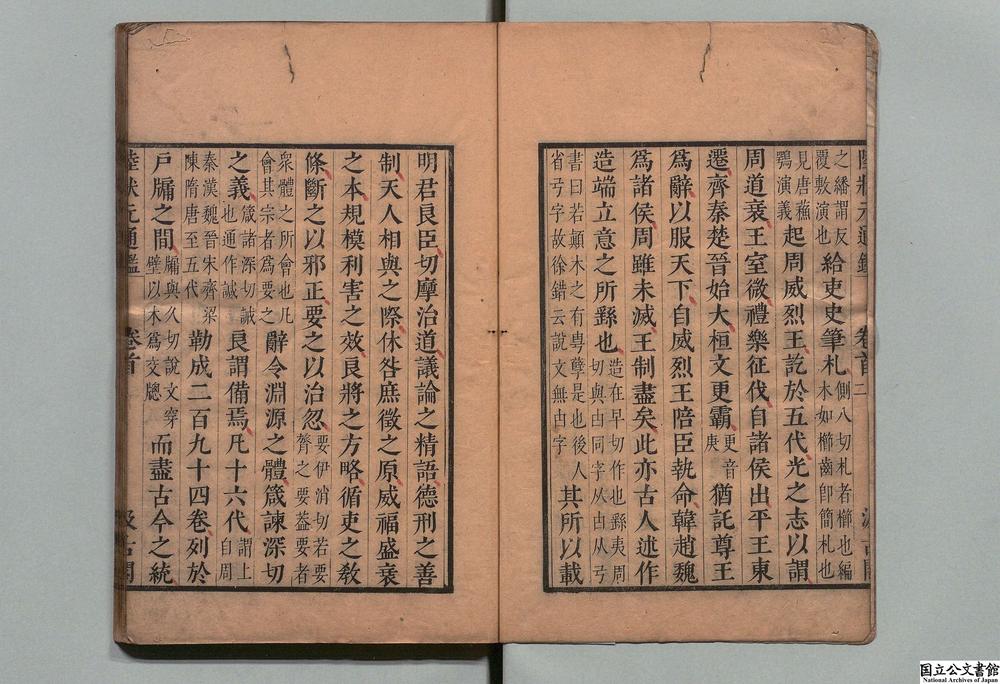 陸狀元通鑑 卷首 二 汲古閣
之繙謂反覆敷演也給吏史筆札側八切札者櫛也編木如櫛齒卽簡札也
見唐蘓鶚演義起周威烈王訖於五代光之志以謂
周道衰王室微禮樂征伐自諸侯出平王東
遷齊秦楚晉始大桓文更霸更音庚猶託尊王
爲辭以服天下自威烈王陪臣執命韓趙魏
爲諸侯周雖未滅王制盡矣此亦古人述作
造端立意之所繇也造在早切作也繇夷周切與由同字从由从弓
書曰若顛木之有甹櫱是也後人省弓字故徐鍇云說文無由字其所以載
明君良臣切摩治道議論之精語德刑之善
制天人相與之際休咎庶徵之原威福盛衰
之本規模利害之效良將之方略循吏之敎
條斷之以邪正要之以治忽要伊消切若要膂之要葢要者
衆體之所會也凡會其宗者爲要之辭令淵源之體箴諫深切
之義箴諸深切誡也通作誠良謂備焉凡十六代謂上自周
秦漢魏晉宋齊梁陳隋唐至五代勒成二百九十四卷列於
戶牖之間牖與久切說文穿壁以木爲交牕而盡古今之統
陸狀元通鑑 卷首 汲古閣
国立公文書館
National Archives of Japan